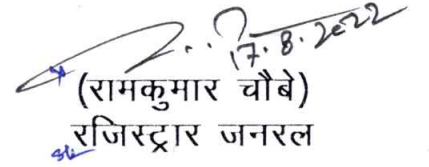 17.8.2022
(रामकुमार चौबे)
रजिस्ट्रार जनरल